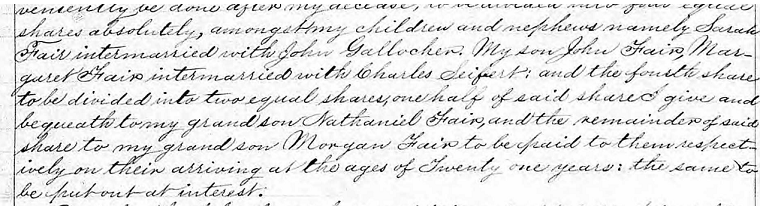 veniently be done after my decease, to be divided into four equal
shares absolutely, amongst my children and nephews namely Sarah
Fair intermarried with John Gallocher. My son John Fair, Mar-
garet Fair intermarried with Charles Seifert: and the fourth share
to be divided into two equal shares, one half of said share I give and
bequeath to my grand son Nathaniel Fair, and the remainder of said
share to my grand son Morgan Fair to be paid to them respect-
ively on their arriving at the ages of Twenty one years: the same to
be put out at interest.